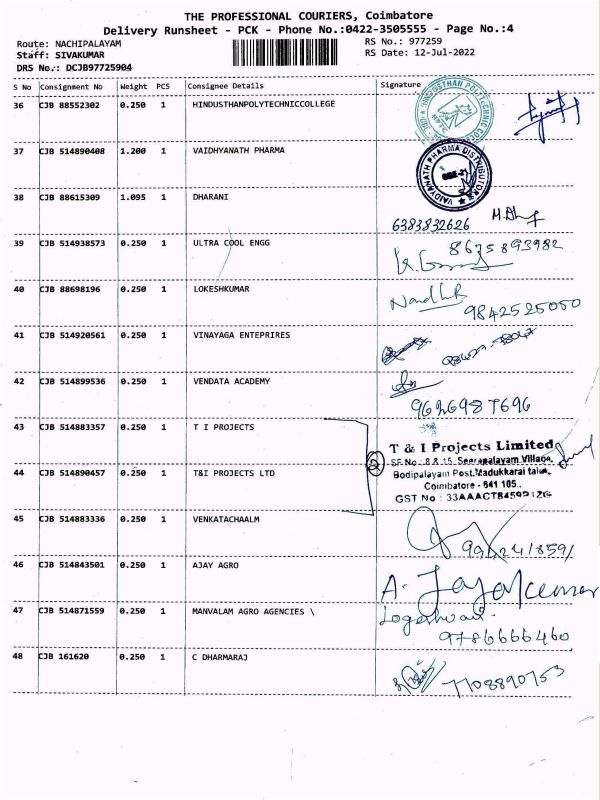 THE PROFESSIONAL COURIERS, Coimbatore
Delivery Runsheet - PCK - Phone No.:0422-3505555 - Page No.:4
Route: NACHIPALAYAM RS No.: 977259
Staff: SIVAKUMAR RS Date: 12-Jul-2022
DRS No.: DCJB97725904
S No Consignment No Weight PCS Consignee Details Signature
36 CJB 88552302 0.250 1 HINDUSTHANPOLYTECHNICCOLLEGE
37 CJB 514890408 1.200 1 VAIDHYANATH PHARMA
VAIDYANATH PHARMA DISTRIBUTORS
38 CJB 88615309 1.095 1 DHARANI
6383832626
39 CJB 514938573 0.250 1 ULTRA COOL ENGG
8675893982
40 CJB 88698196 0.250 1 LOKESHKUMAR
9842525050
41 CJB 514920561 0.250 1 VINAYAGA ENTEPRIRES
42 CJB 514899536 0.250 1 VENDATA ACADEMY
9626987696
43 CJB 514883357 0.250 1 T I PROJECTS
T & I Projects Limited
SF No. 8 & 15, Seerapalayam Village,
44 CJB 514890457 0.250 1 T&I PROJECTS LTD
2
Bodipalayam Post, Madukkarai taluk,
Coimbatore - 641 105.
GST No :
45 CJB 514883336 0.250 1 VENKATACHAALM
46 CJB 514843501 0.250 1 AJAY AGRO
A. Jayakumar
47 CJB 514871559 0.250 1 MANVALAM AGRO AGENCIES \
Logeshwari
9786666460
48 CJB 161620 0.250 1 C DHARMARAJ
7708890753